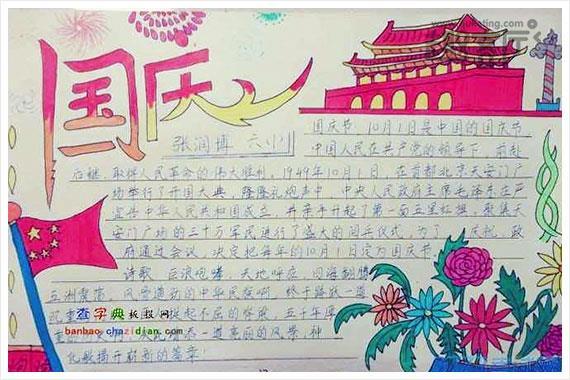 国庆
张润博 六小
国庆节 10月1日是中国的国庆节
中国人民在共产党的领导下，前赴
后继，取得人民革命的伟大胜利，1949年10月1日，在首都北京天安门广
场举行了开国大典，隆隆礼炮声中，中央人民政府主席毛泽东在庄
宣告中华人民共和国成立，并亲手升起了第一面五星红旗，聚集天
安门广场的三十万军民进行了盛大的阅兵仪式，为了 庆祝，政
府通过会议，决定把每年的10月1日定为国庆节
诗歌 巨浪咆哮，天地呼应，四海翻腾
五洲震荡，风雪道劲的中华民族啊，终于路
挺起不屈的脊梁，五千年
添一道亮丽的风景，神
化歌揭开崭新的篇章！
查字典板报网
banbao.chazidian.com